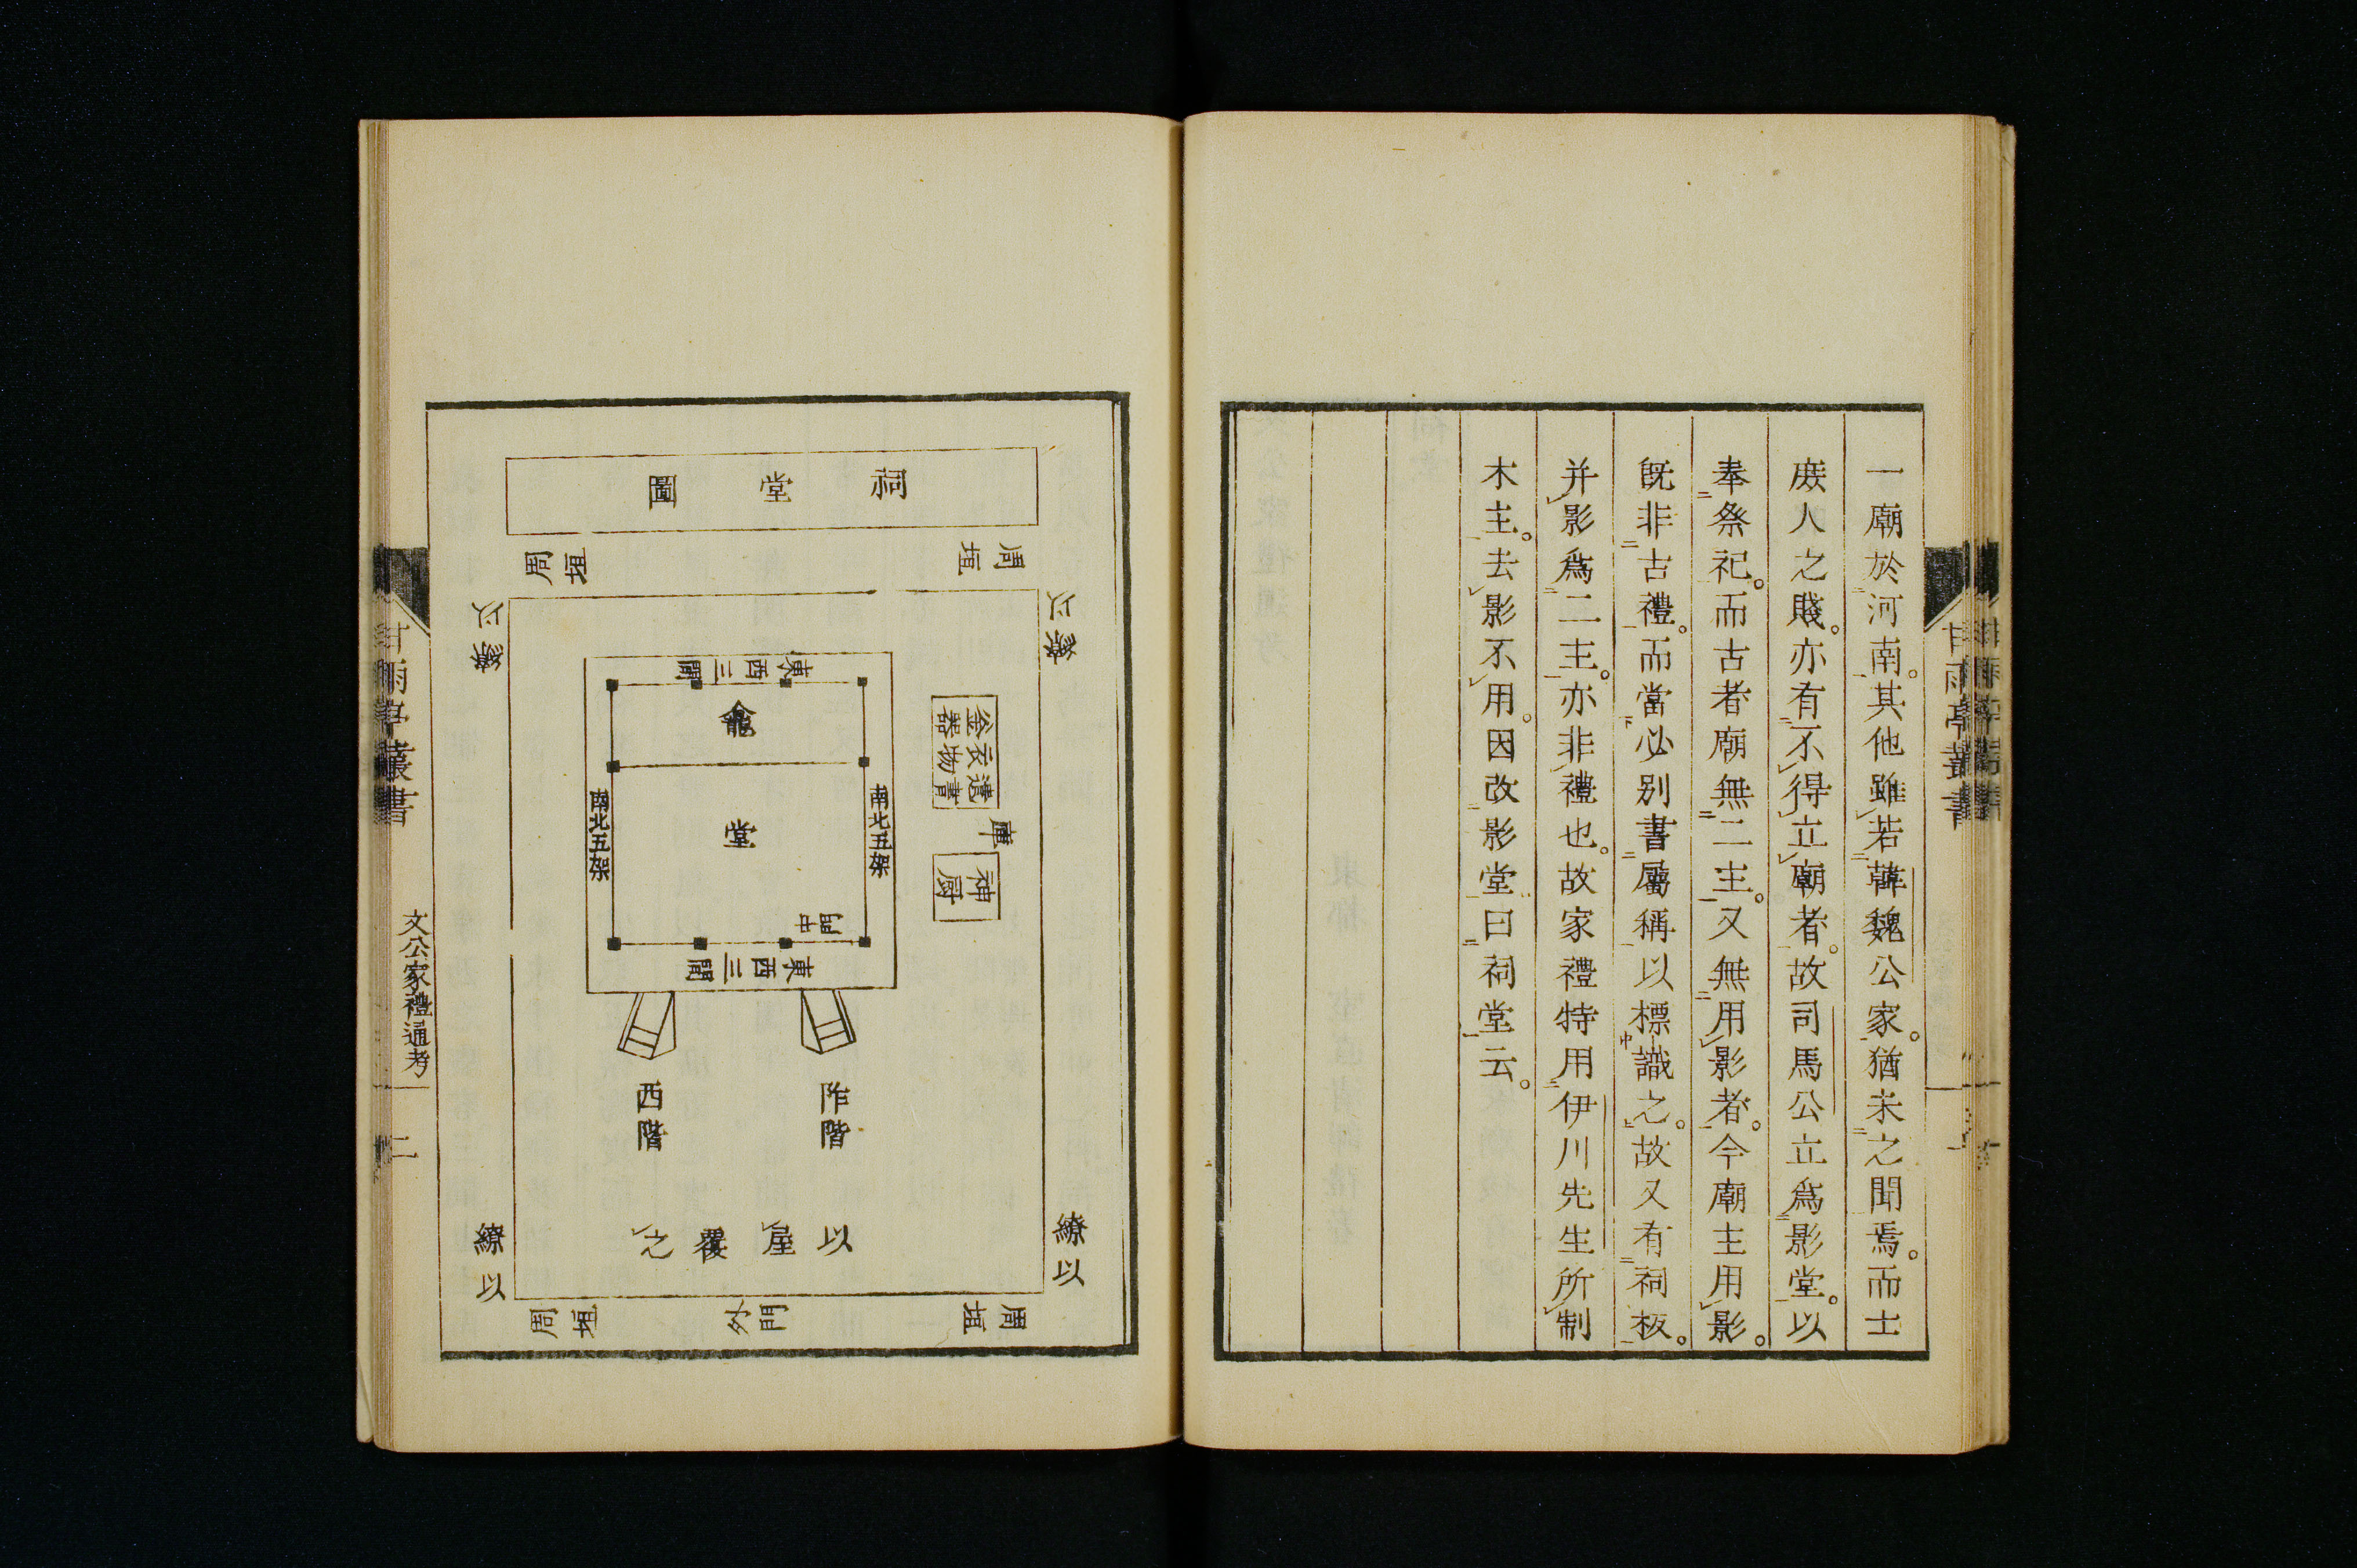 一廟於河南。其他雖若韓魏公家。猶未之聞焉。而士
庻人之賤。亦有不得立廟者。故司馬公立爲影堂。以
奉祭祀。而古者廟無二主。又無用影者。今廟主用影。
既非古禮。而當必别書屬稱以標識之。故又有祠板。
并影爲二主。亦非禮也。故家禮特用伊川先生所制
木主。去影不用。因改影堂曰祠堂云。
甘雨亭叢書
祠堂圖
周垣
周垣
以繚
以繚
東西三間
龕
堂
南北五架
南北五架
中門
東西三間
遺書
衣物
釜器
庫
神厨
阼階
西階
以屋覆之
繚以
繚以
周垣
外門
周垣
甘雨亭叢書
文公家禮通考
二